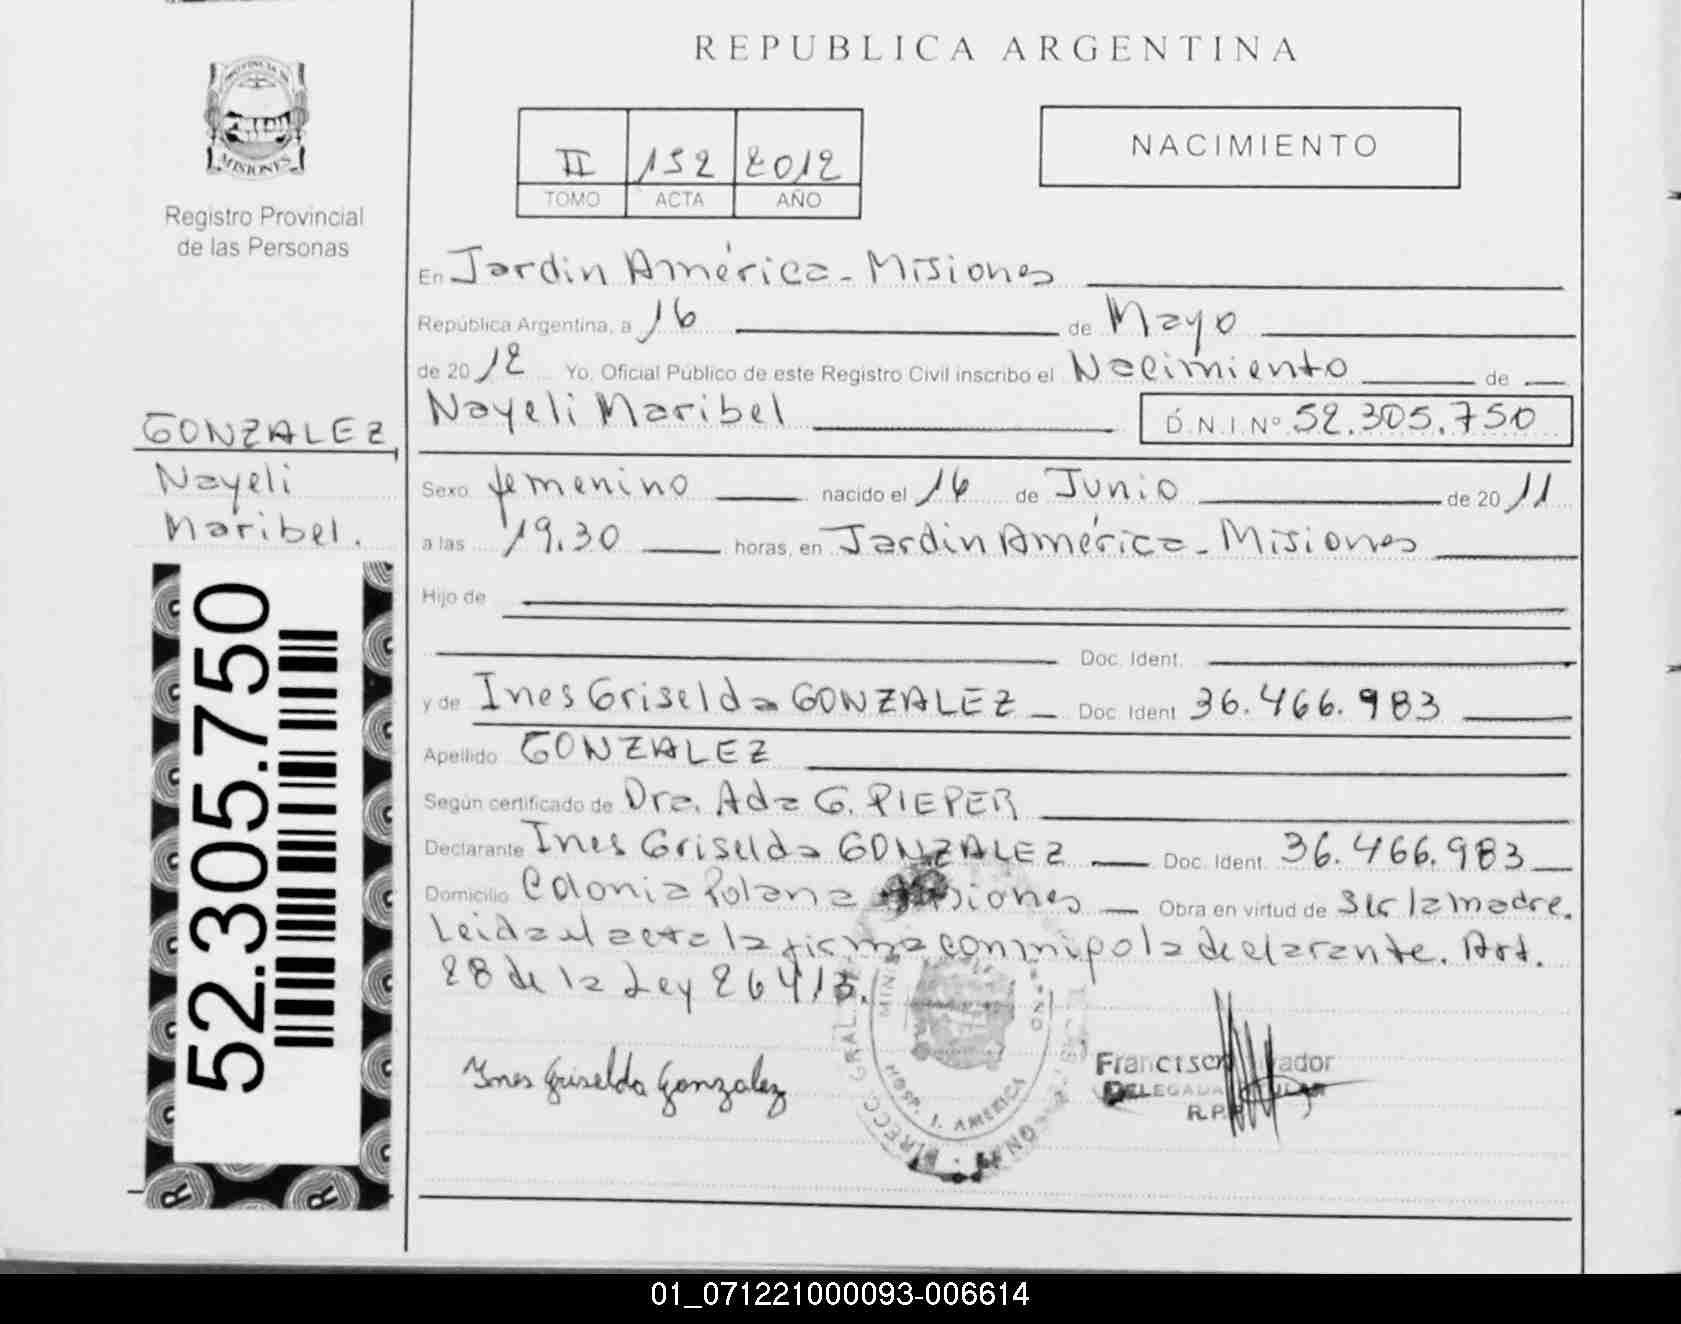 REPUBLICA ARGENTINA
PROVINCIA DE
MISIONES
Registro Provincial
de las Personas
II 152 2012
TOMO ACTA AÑO
NACIMIENTO
En Jardin América - Misiones
República Argentina, a 16 de Mayo
de 2012 Yo, Oficial Público de este Registro Civil inscribo el Nacimiento de
Nayeli Maribel D.N.I.Nº 52.305.750
GONZALEZ
Nayeli
Maribel.
Sexo femenino nacido el 16 de Junio de 2011
a las 19.30 horas, en Jardin América - Misiones
Hijo de
Doc. Ident.
y de Ines Griselda GONZALEZ Doc. Ident 36.466.983
Apellido GONZALEZ
Según certificado de Dra. Ada G. PIEPER
Declarante Ines Griselda GONZALEZ Doc. Ident. 36.466.983
Domicilio Colonia Polana Misiones Obra en virtud de ser la madre.
Leida el acta la firma conmigo la declarante. Art.
28 de la Ley 26413.
52.305.750
Ines Griselda Gonzalez
HOSP. J. AMERICA
Francisco
DELEGADA
R.P.
01_071221000093-006614